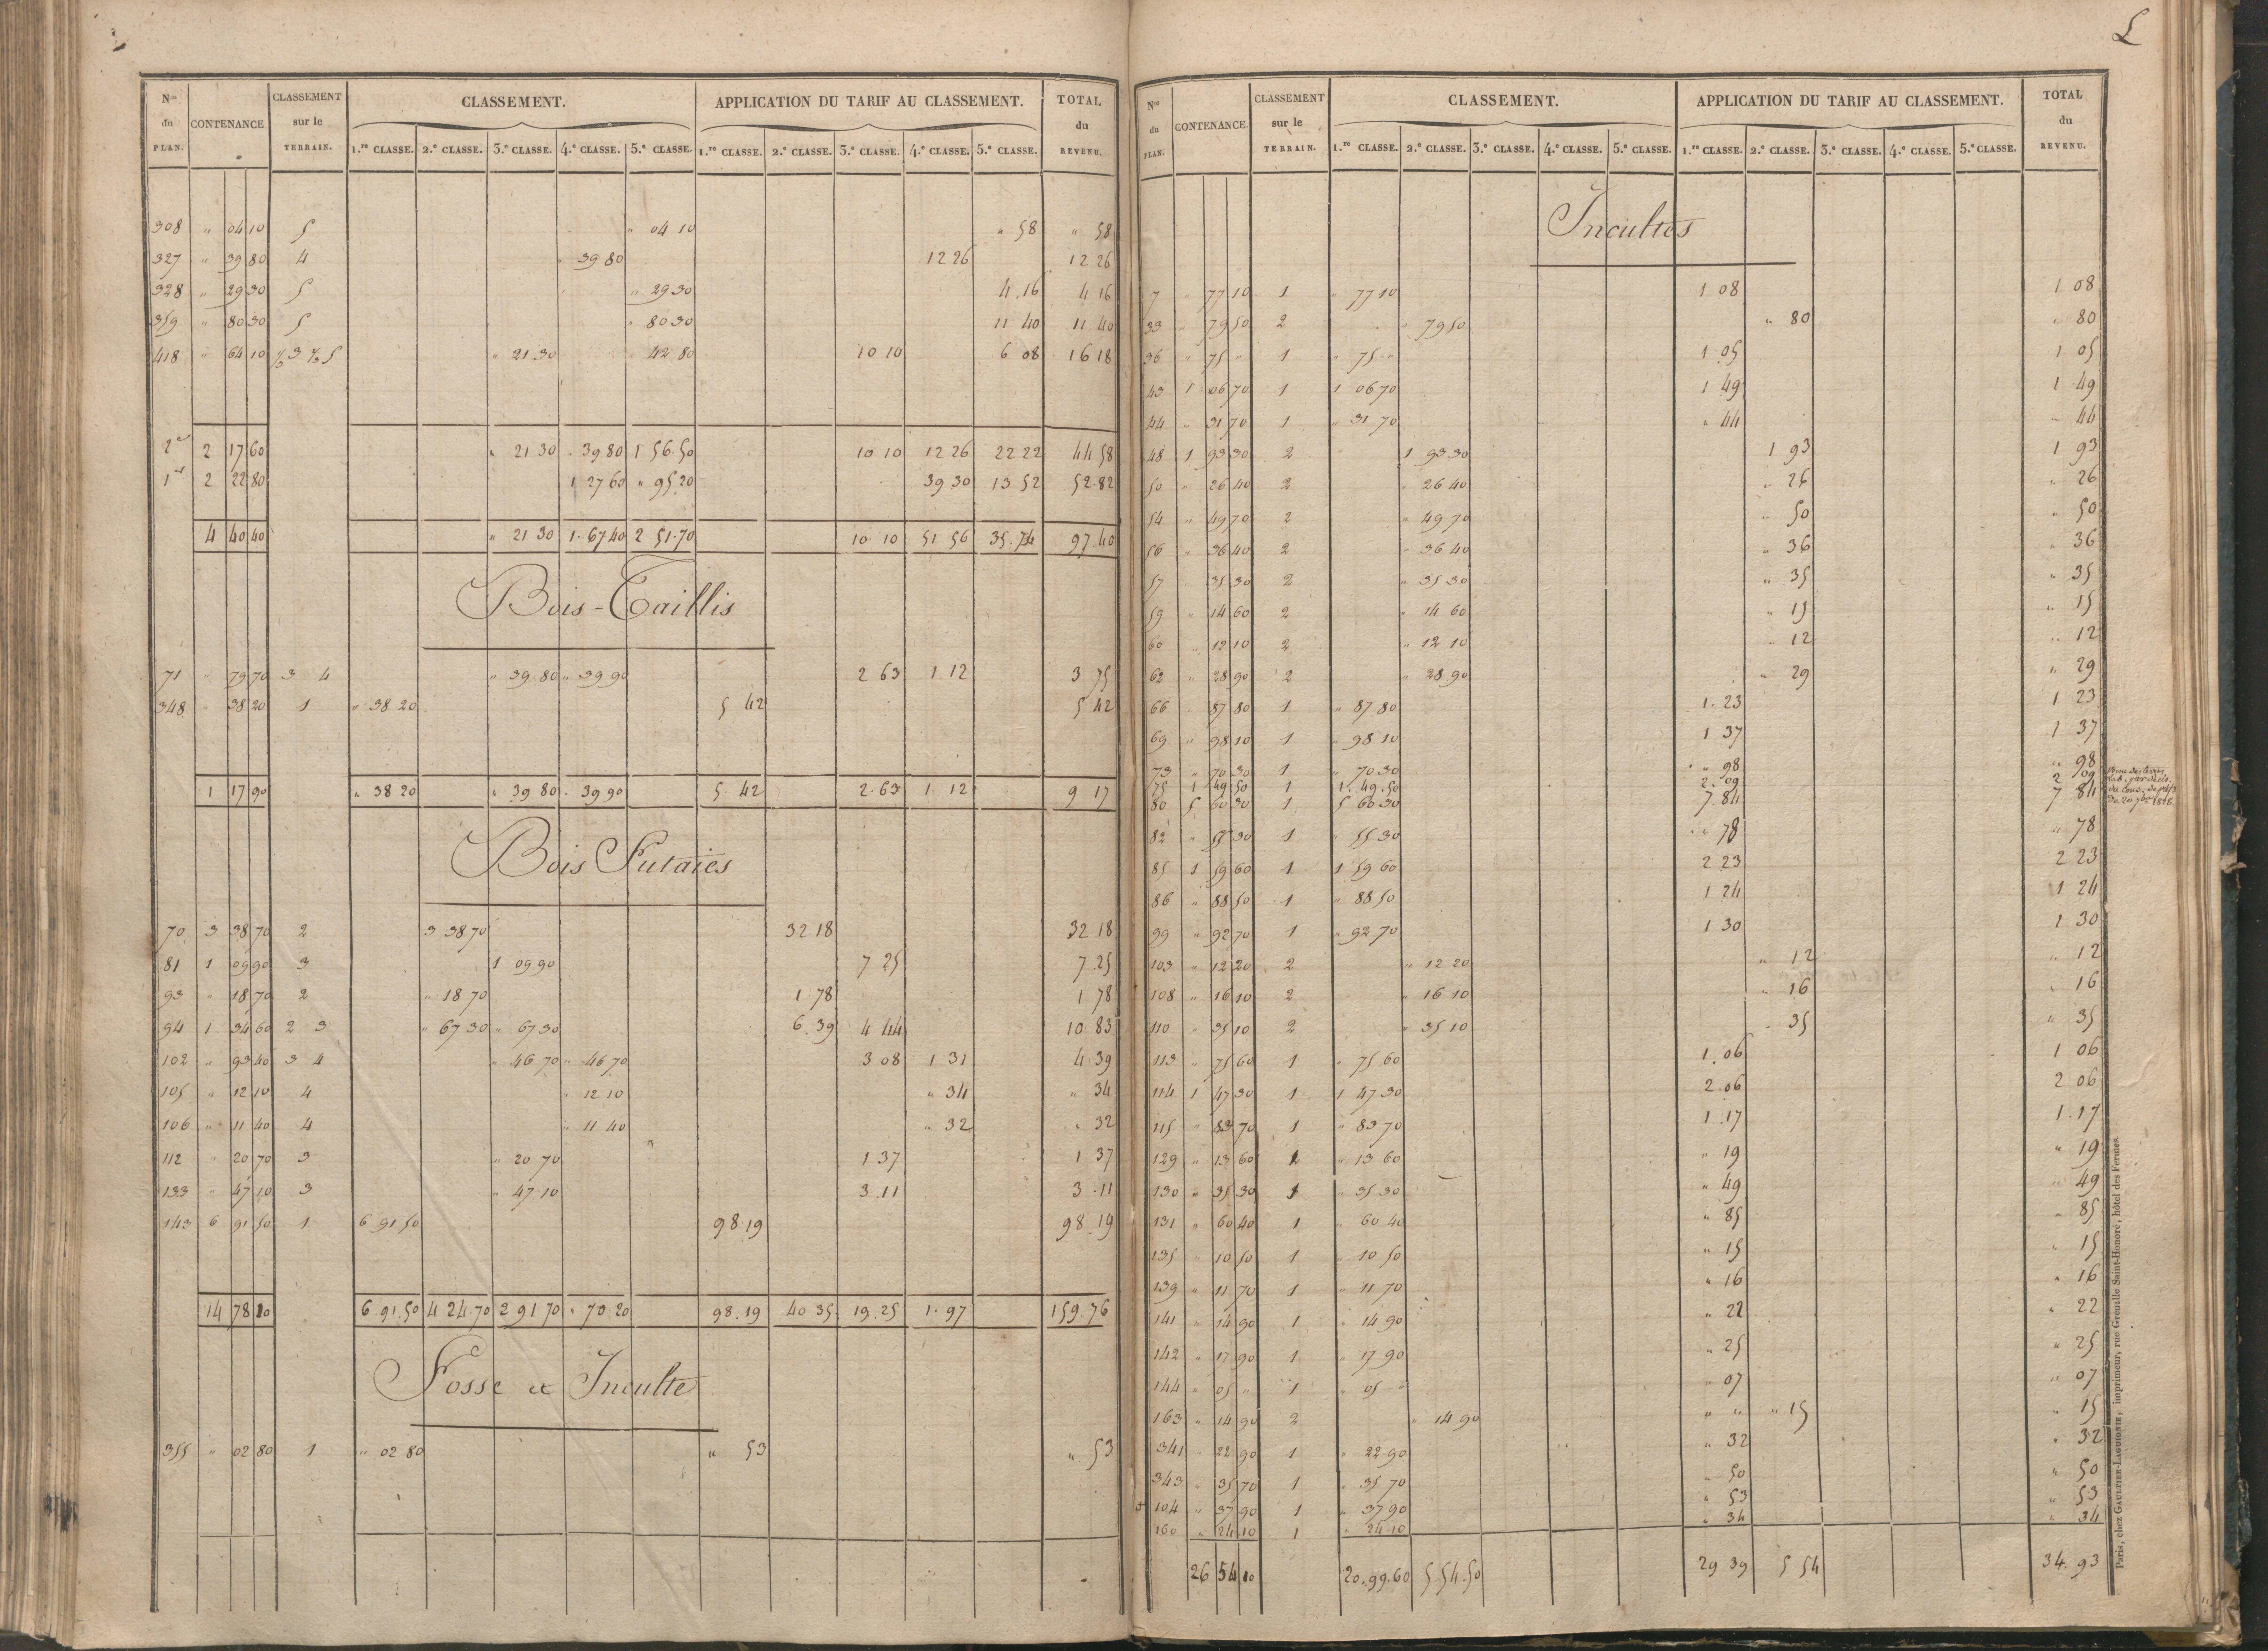 L
Nos du PLAN. CONTENANCE. CLASSEMENT sur le TERRAIN. CLASSEMENT. APPLICATION DU TARIF AU CLASSEMENT. TOTAL du REVENU.
1.re CLASSE. 2.e CLASSE. 3.e CLASSE. 4.e CLASSE. 5.e CLASSE. 1.re CLASSE. 2.e CLASSE. 3.e CLASSE. 4.e CLASSE. 5.e CLASSE.
308 " 04 10 5 " 04 10 " 58 " 58
327 " 39 80 4 " 39 80 12 26 12 26
328 " 29 30 5 " 29 30 4 16 4 16
359 " 80 30 5 " 80 30 11 40 11 40
418 " 64 10 1/3 3 2/3 5 " 21 30 " 42 80 10 10 6 08 16 18
2e 2 17 60 " 21 30 " 39 80 1 56 50 10 10 12 26 22 22 44 58
1re 2 22 80 1 27 60 " 95 20 39 30 13 52 52 82
4 40 40 " 21 30 1 67 40 2 51 70 10 10 51 56 35 74 97 40
Bois-Taillis
71 " 79 70 3 4 " 39 80 " 39 90 2 63 1 12 3 75
348 " 38 20 1 " 38 20 5 42 5 42
1 17 90 " 38 20 " 39 80 " 39 90 5 42 2 63 1 12 9 17
Bois Futaies
70 3 38 70 2 3 38 70 32 18 32 18
81 1 09 90 3 1 09 90 7 25 7 25
93 " 18 70 2 " 18 70 1 78 1 78
94 1 34 60 2 3 " 67 30 " 67 30 6 39 4 44 10 83
102 " 93 40 3 4 " 46 70 " 46 70 3 08 1 31 4 39
105 " 12 10 4 " 12 10 " 34 " 34
106 " 11 40 4 " 11 40 " 32 " 32
112 " 20 70 3 " 20 70 1 37 1 37
133 " 47 10 3 " 47 10 3 11 3 11
143 6 91 50 1 6 91 50 98 19 98 19
14 78 10 6 91 50 4 24 70 2 91 70 " 70 20 98 19 40 35 19 25 1 97 159 76
Fosse et Inculte
355 " 02 80 1 " 02 80 " 53 " 53
Nos du PLAN. CONTENANCE. CLASSEMENT sur le TERRAIN. CLASSEMENT. APPLICATION DU TARIF AU CLASSEMENT. TOTAL du REVENU.
1.re CLASSE. 2.e CLASSE. 3.e CLASSE. 4.e CLASSE. 5.e CLASSE. 1.re CLASSE. 2.e CLASSE. 3.e CLASSE. 4.e CLASSE. 5.e CLASSE.
Incultes
7 " 77 10 1 " 77 10 1 08 1 08
33 " 79 50 2 " 79 50 " 80 " 80
36 " 75 " 1 " 75 " 1 05 1 05
43 1 06 70 1 1 06 70 1 49 1 49
44 " 31 70 1 " 31 70 " 44 " 44
48 1 93 30 2 1 93 30 1 93 1 93
50 " 26 40 2 " 26 40 " 26 " 26
54 " 49 70 2 " 49 70 " 50 " 50
56 " 36 40 2 " 36 40 " 36 " 36
57 " 35 30 2 " 35 30 " 35 " 35
59 " 14 60 2 " 14 60 " 15 " 15
60 " 12 10 2 " 12 10 " 12 " 12
62 " 28 90 2 " 28 90 " 29 " 29
66 " 87 80 1 " 87 80 1 23 1 23
69 " 98 10 1 " 98 10 1 37 1 37
73 " 70 30 1 " 70 30 " 98 " 98
75 1 49 50 1 1 49 50 2 09 2 09
80 5 60 30 1 5 60 30 7 84 7 84
82 " 55 30 1 " 55 30 " 78 " 78
85 1 59 60 1 1 59 60 2 23 2 23
86 " 88 50 1 " 88 50 1 24 1 24
99 " 92 70 1 " 92 70 1 30 1 30
103 " 12 20 2 " 12 20 " 12 " 12
108 " 16 10 2 " 16 10 " 16 " 16
110 " 35 10 2 " 35 10 " 35 " 35
113 " 75 60 1 " 75 60 1 06 1 06
114 1 47 30 1 1 47 30 2 06 2 06
115 " 83 70 1 " 83 70 1 17 1 17
129 " 13 60 1 " 13 60 " 19 " 19
130 " 35 30 1 " 35 30 " 49 " 49
131 " 60 40 1 " 60 40 " 85 " 85
135 " 10 50 1 " 10 50 " 15 " 15
139 " 11 70 1 " 11 70 " 16 " 16
141 " 14 90 1 " 14 90 " 22 " 22
142 " 17 90 1 " 17 90 " 25 " 25
144 " 05 " 1 " 05 " " 07 " 07
163 " 14 90 2 " 14 90 " " " 15 " 15
341 " 22 90 1 " 22 90 " 32 " 32
343 " 35 70 1 " 35 70 " 50 " 50
+ 104 " 37 90 1 " 37 90 " 53 " 53
160 " 24 10 1 " 24 10 " 34 " 34
26 54 10 20.99.60 5.54.50 29 39 5 54 34.93
Paris, chez GAULTIER-LAGUIONIE, imprimeur, rue Grenelle Saint-Honoré, hôtel des Fermes.